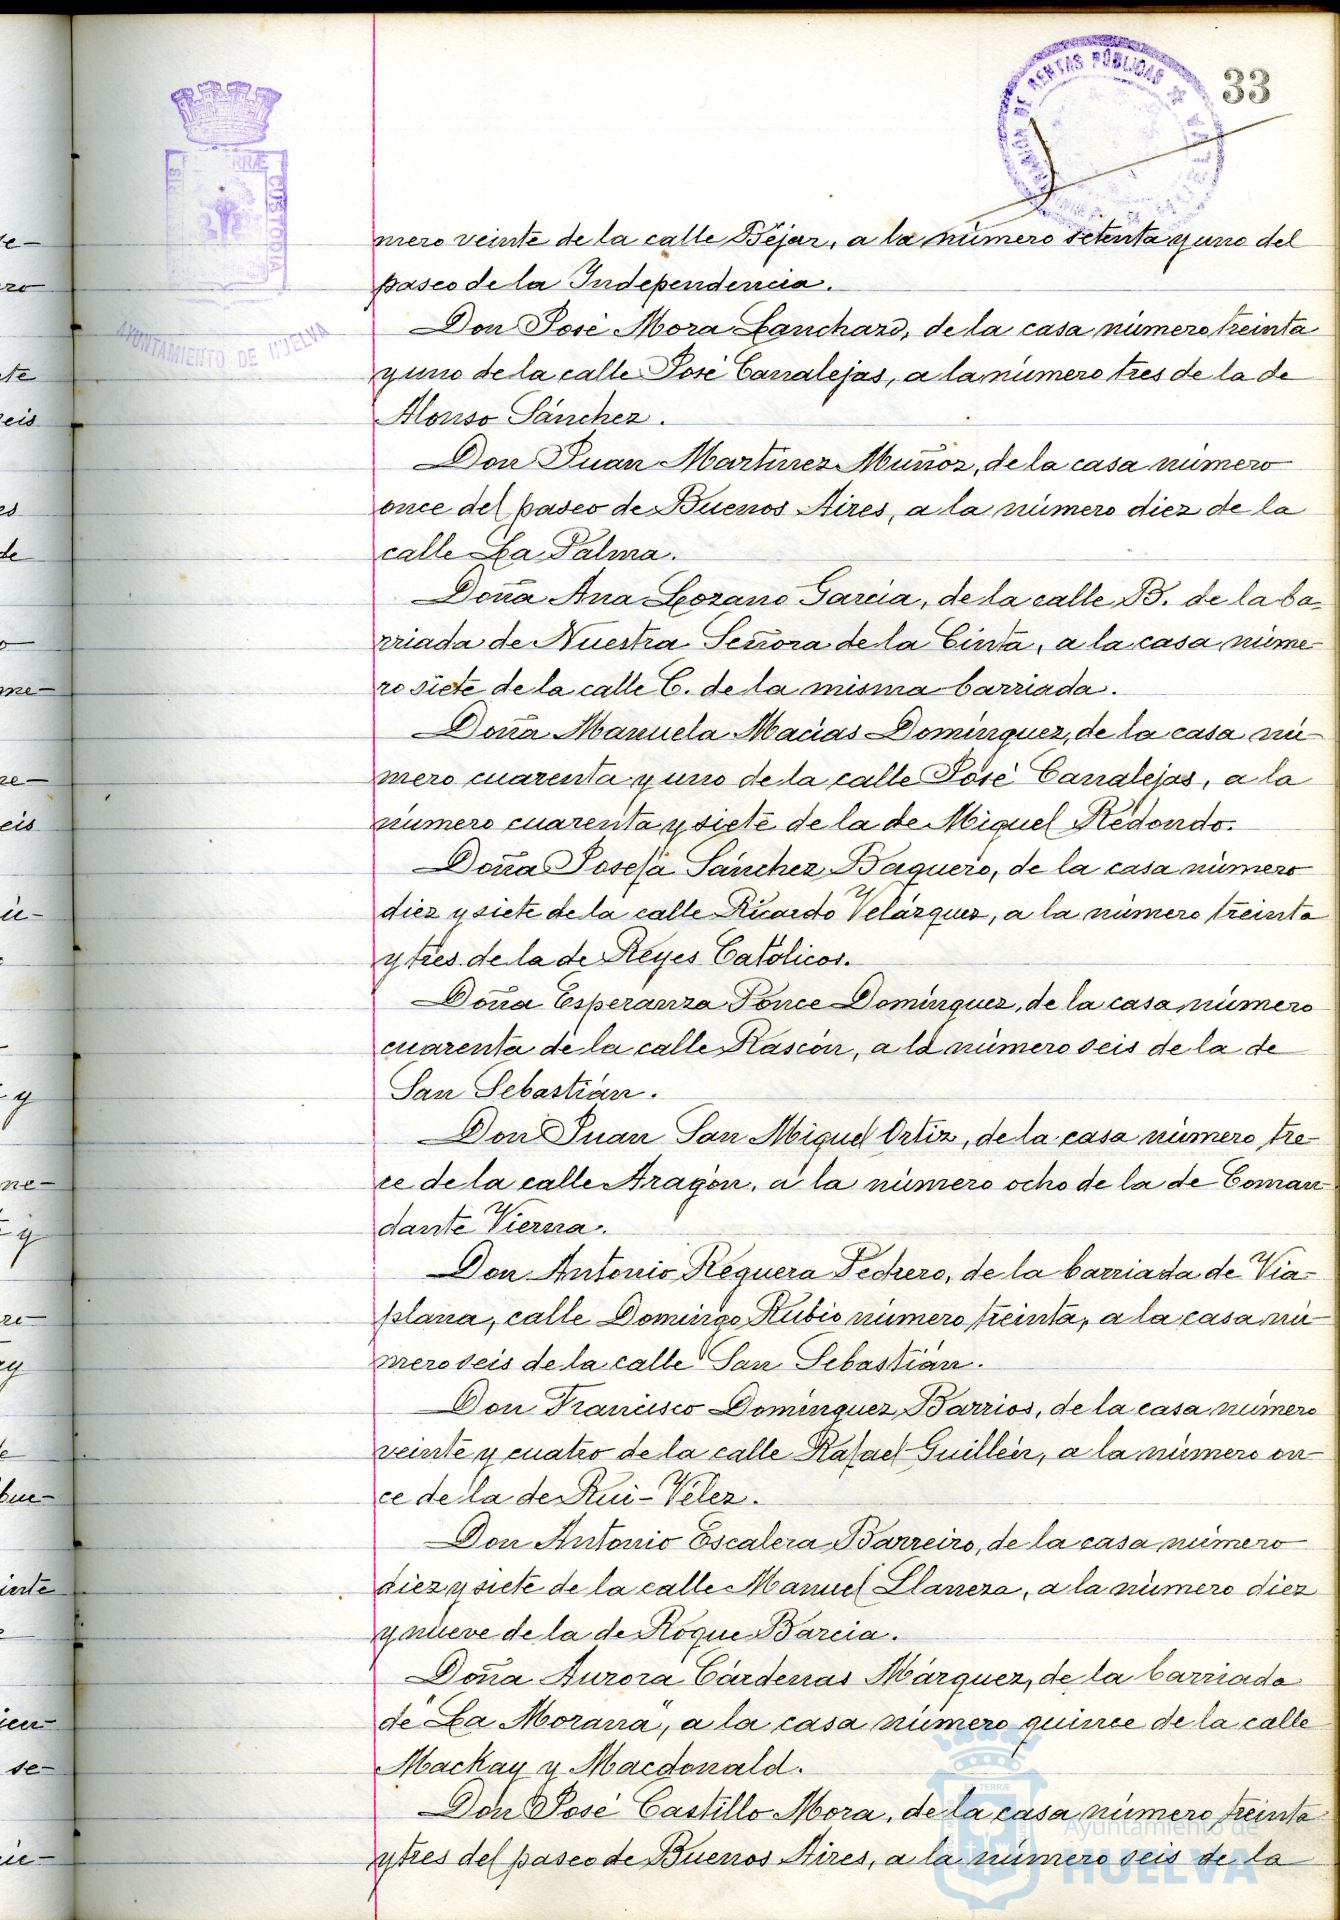 33
ADMINISTRACIÓN DE RENTAS PÚBLICAS
HUELVA
PORTUS MARIS ET TERRÆ CUSTODIA
AYUNTAMIENTO DE HUELVA
mero veinte de la calle Béjar, a la número setenta y uno del
paseo de la Independencia.
Don José Mora Lanchazo, de la casa número treinta
y uno de la calle José Canalejas, a la número tres de la de
Alonso Sánchez.
Don Juan Martínez Muñoz, de la casa número
once del paseo de Buenos Aires, a la número diez de la
calle La Palma.
Doña Ana Lozano García, de la calle B. de la ba-
rriada de Nuestra Señora de la Cinta, a la casa núme-
ro siete de la calle C. de la misma barriada.
Doña Manuela Macías Domínguez, de la casa nú-
mero cuarenta y uno de la calle José Canalejas, a la
número cuarenta y siete de la de Miguel Redondo.
Doña Josefa Sánchez Baquero, de la casa número
diez y siete de la calle Ricardo Velázquez, a la número treinta
y tres de la de Reyes Católicos.
Doña Esperanza Ponce Domínguez, de la casa número
cuarenta de la calle Rascón, a la número seis de la de
San Sebastián.
Don Juan San Miguel Ortiz, de la casa número tre-
ce de la calle Aragón, a la número ocho de la de Coman-
dante Vierna.
Don Antonio Reguera Pedrero, de la barriada de Via-
plana, calle Domingo Rubio número treinta, a la casa nú-
mero seis de la calle San Sebastián.
Don Francisco Domínguez Barrios, de la casa número
veinte y cuatro de la calle Rafael Guillén, a la número on-
ce de la de Rui-Vélez.
Don Antonio Escalera Barreiro, de la casa número
diez y siete de la calle Manuel Llaneza, a la número diez
y nueve de la de Roque Barcia.
Doña Aurora Cárdenas Márquez, de la barriada
de "La Morana", a la casa número quince de la calle
Mackay y Macdonald.
Don José Castillo Mora, de la casa número treinta
y tres del paseo de Buenos Aires, a la número seis de la
Ayuntamiento de
HUELVA